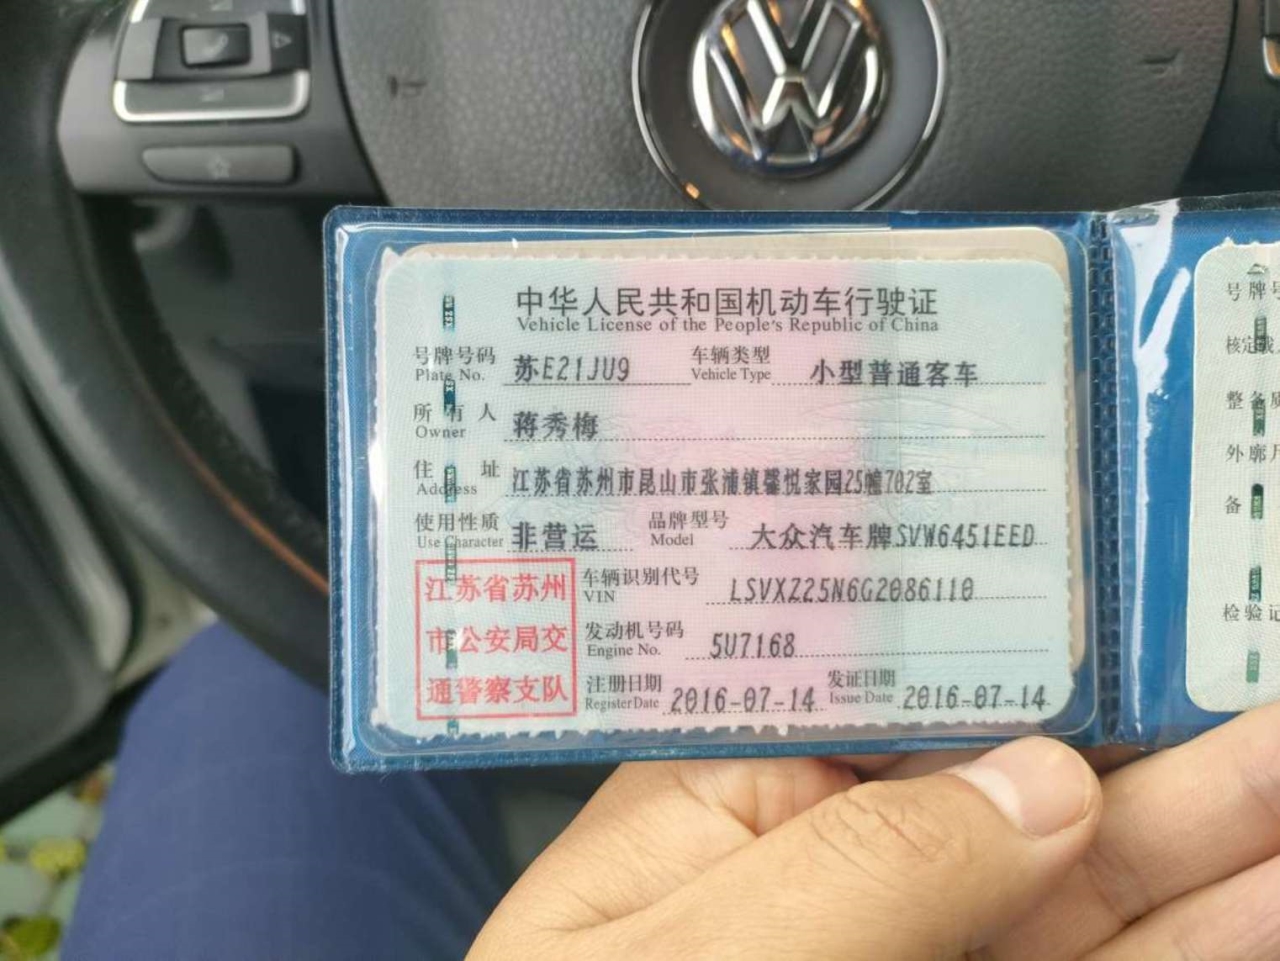 中华人民共和国机动车行驶证
Vehicle License of the People's Republic of China
号牌号码 苏E21JU9 车辆类型 小型普通客车
Plate No. Vehicle Type
所有人 蒋秀梅
Owner
住址 江苏省苏州市昆山市张浦镇馨悦家园25幢702室
Address
使用性质 非营运 品牌型号 大众汽车牌SVW6451EED
Use Character Model
江苏省苏州
市公安局交
通警察支队
车辆识别代号 LSVXZ25N6G2086110
VIN
发动机号码 5U7168
Engine No.
注册日期 2016-07-14 发证日期 2016-07-14
Register Date Issue Date
号牌号
核定载人
整备质
外廓尺
备
检验记